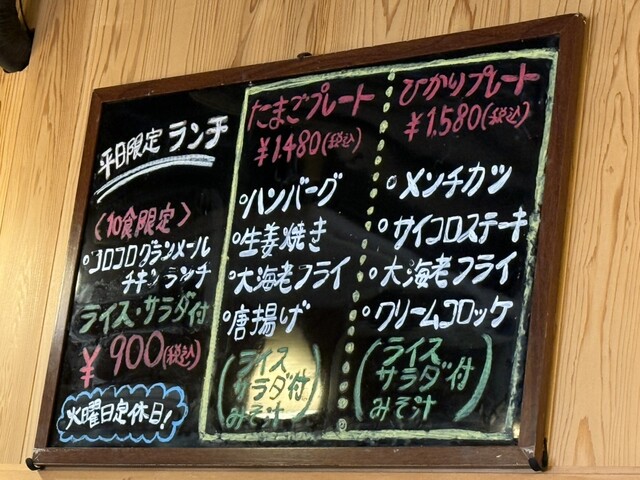 平日限定 ランチ
〈10食限定〉
○コロコログランメール
チキンランチ
ライス・サラダ付
¥900(税込)
火曜日定休日!
たまごプレート
¥1.480(税込)
○ハンバーグ
○生姜焼き
○大海老フライ
○唐揚げ
(ライス
サラダ付
みそ汁)
ひかりプレート
¥1.580(税込)
○メンチカツ
○サイコロステーキ
○大海老フライ
○クリームコロッケ
(ライス
サラダ付
みそ汁)